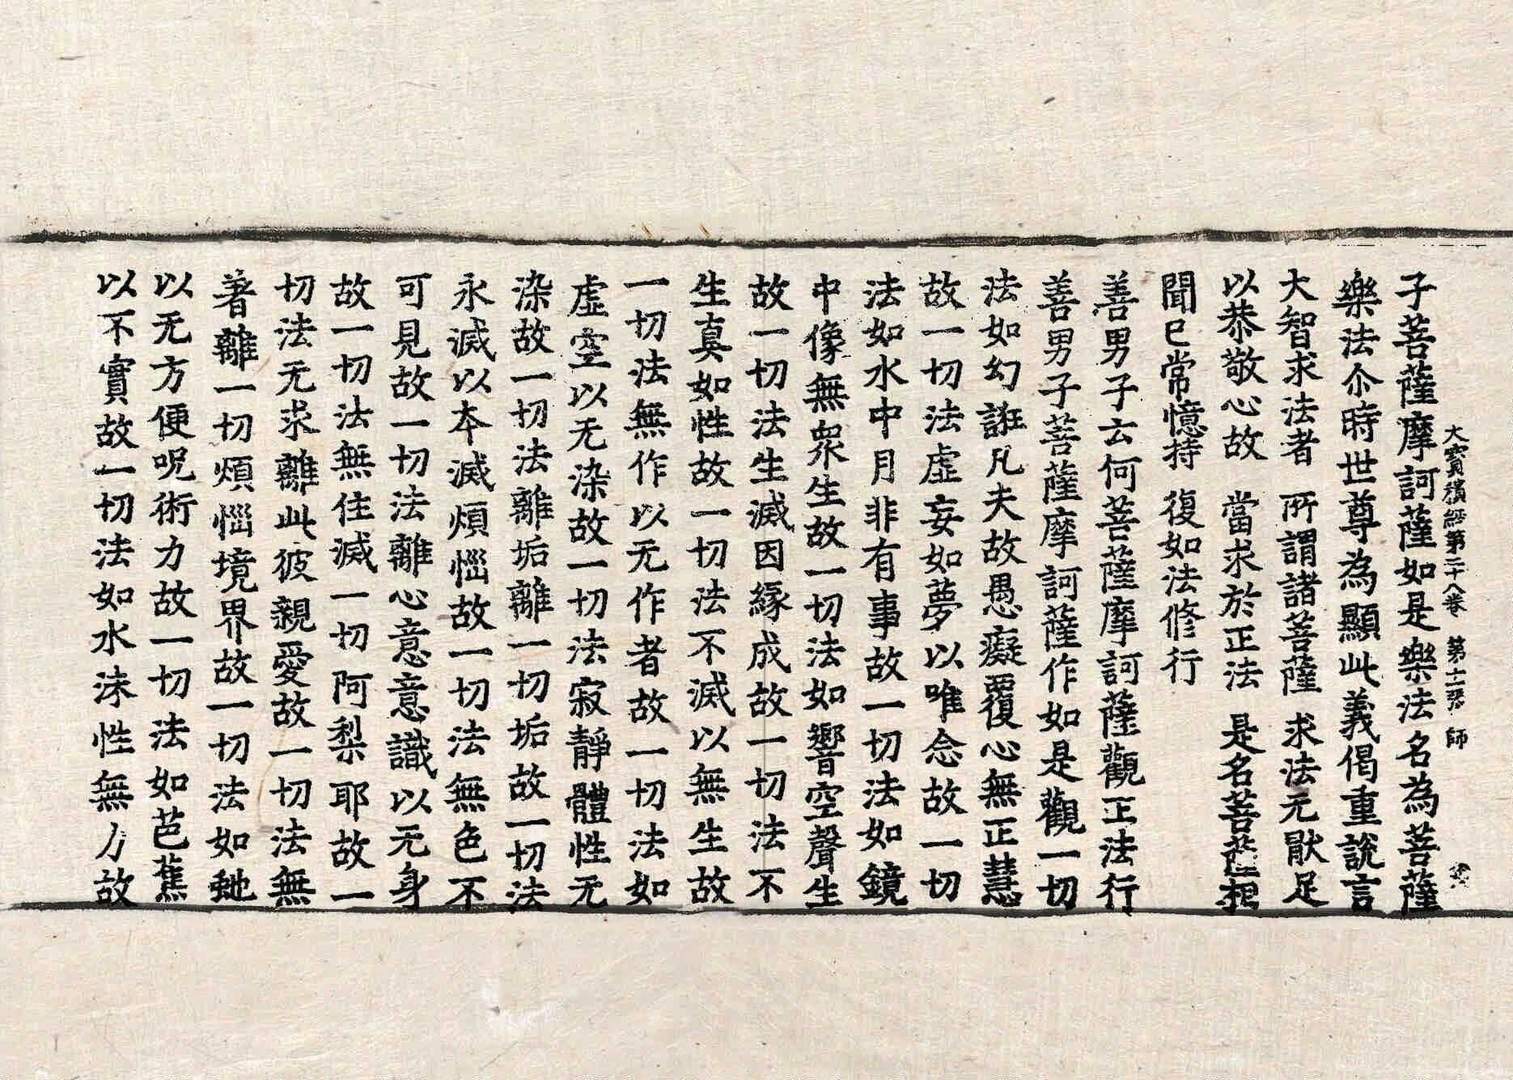 大寶積經第二十八卷 第十二張 師
子菩薩摩訶薩如是樂法名為菩薩
樂法尒時世尊為顯此義偈重說言
大智求法者 所謂諸菩薩 求法无猒足
以恭敬心故 當求於正法 是名菩薩相
聞已常憶持 復如法修行
善男子云何菩薩摩訶薩觀正法行
善男子菩薩摩訶薩作如是觀一切
法如幻誑凡夫故愚癡覆心無正慧
故一切法虛妄如夢以唯念故一切
法如水中月非有事故一切法如鏡
中像無衆生故一切法如響空聲生
故一切法生滅因緣成故一切法不
生真如性故一切法不滅以無生故
一切法無作以无作者故一切法如
虛空以无染故一切法寂靜體性无
染故一切法離垢離一切垢故一切法
永滅以本滅煩惱故一切法無色不
可見故一切法離心意意識以无身
故一切法無住滅一切阿梨耶故一
切法无求離此彼親愛故一切法無
著離一切煩惱境界故一切法如虵
以无方便呪術力故一切法如芭蕉
以不實故一切法如水沫性無力故